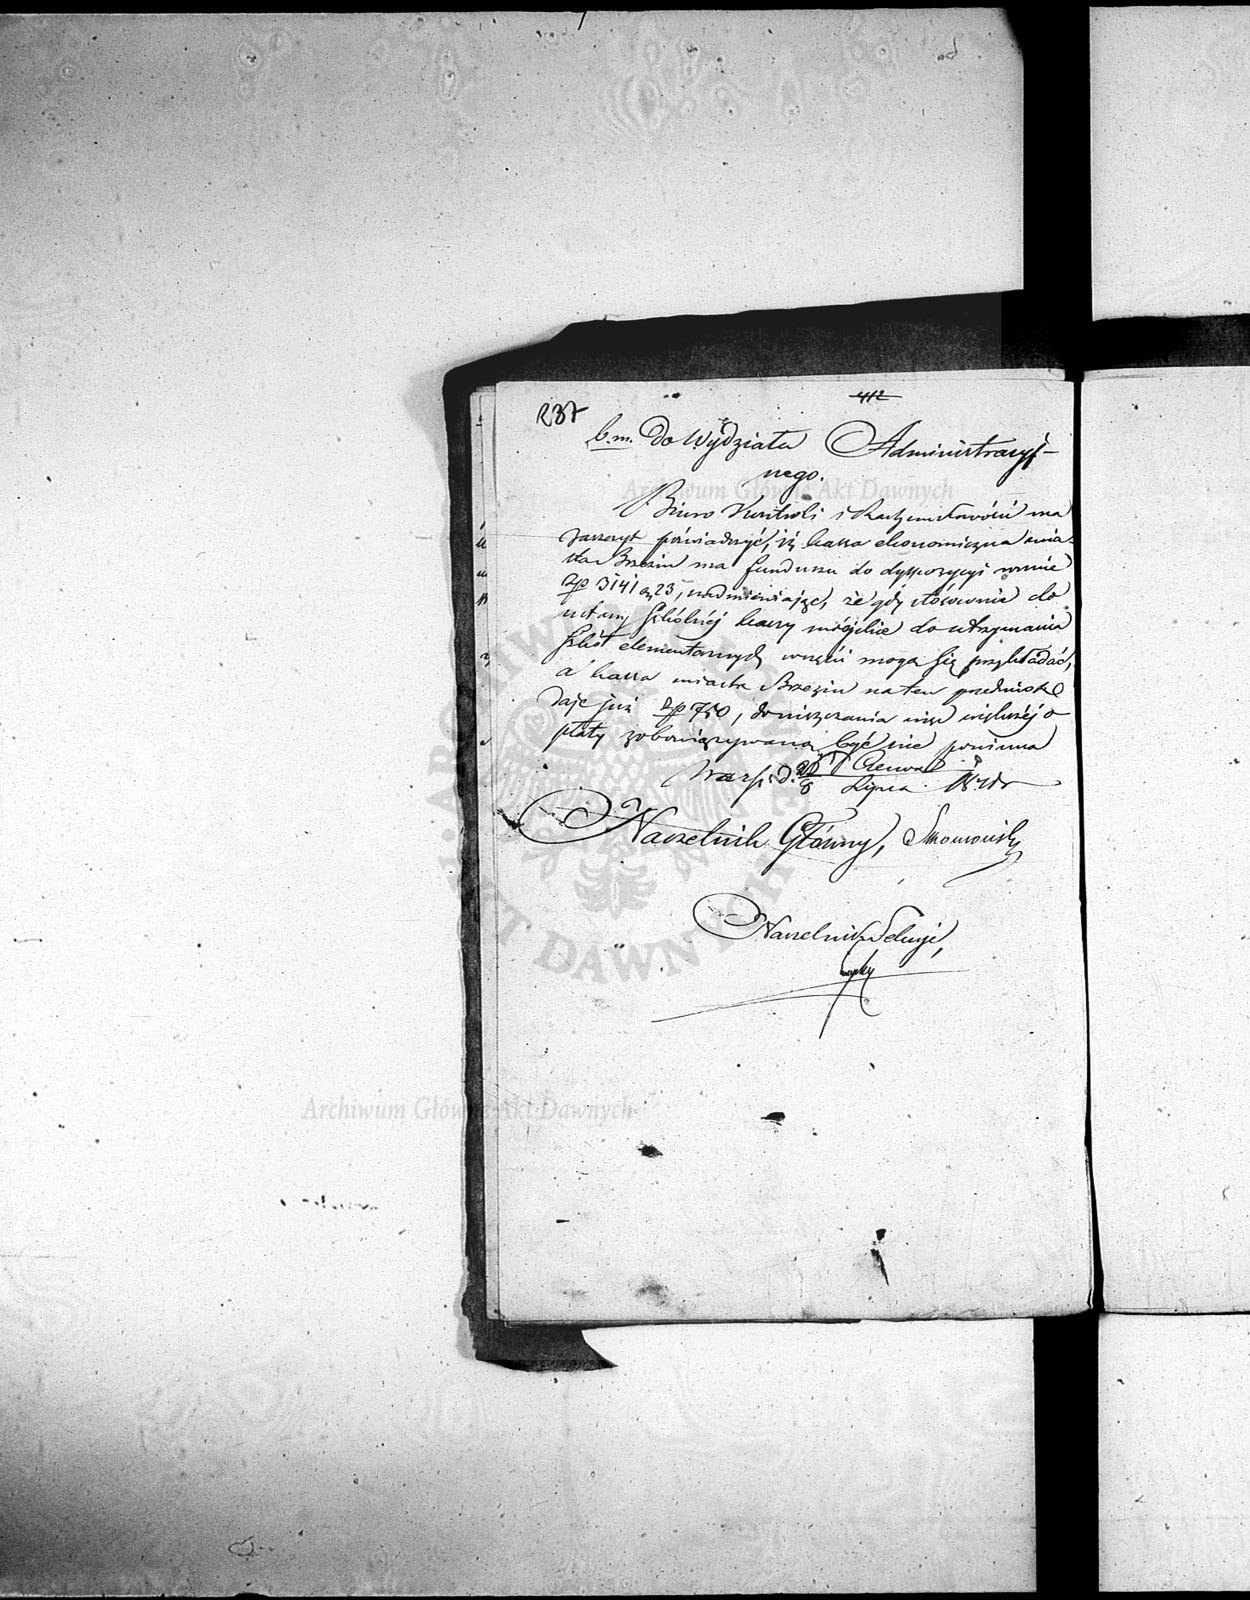 412
237
b.m. Do Wydziału Administracyj-
nego.
Biuro Kontroli i Rachunkowości ma
zaszczyt poświadczyć, iż kassa ekonomiczna mia-
sta Brzezin ma funduszu do dyspozycyi
Zp 3141 gr 23, nadmieniając, że gdy stósownie do
ustawy szkólnéj kassy miejskie do utrzymania
szkół elementarnych mogą się przykładać,
a kassa miasta Brzezin na ten przedmiot
daje już Zp 750, do uiszczania więc większéj o-
płaty zobowiązywaną być nie powinna
Warsz. d. Czerwca
Lipca
Naczelnik Główny,
Naczelnik Sekcyi,
Archiwum Główne Akt Dawnych
Archiwum Główne Akt Dawnych